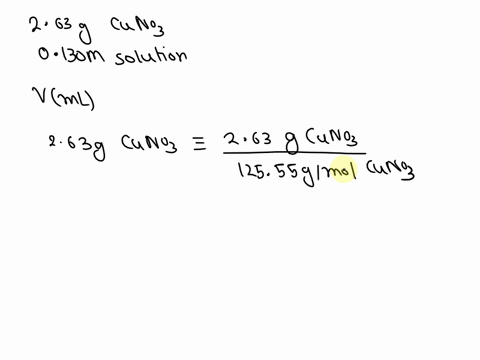 2.63 g CuNO3
0.130M solution
V(mL)
2.63g CuNO3 ≡ 2.63 g CuNO3
125.55g/mol CuNO3